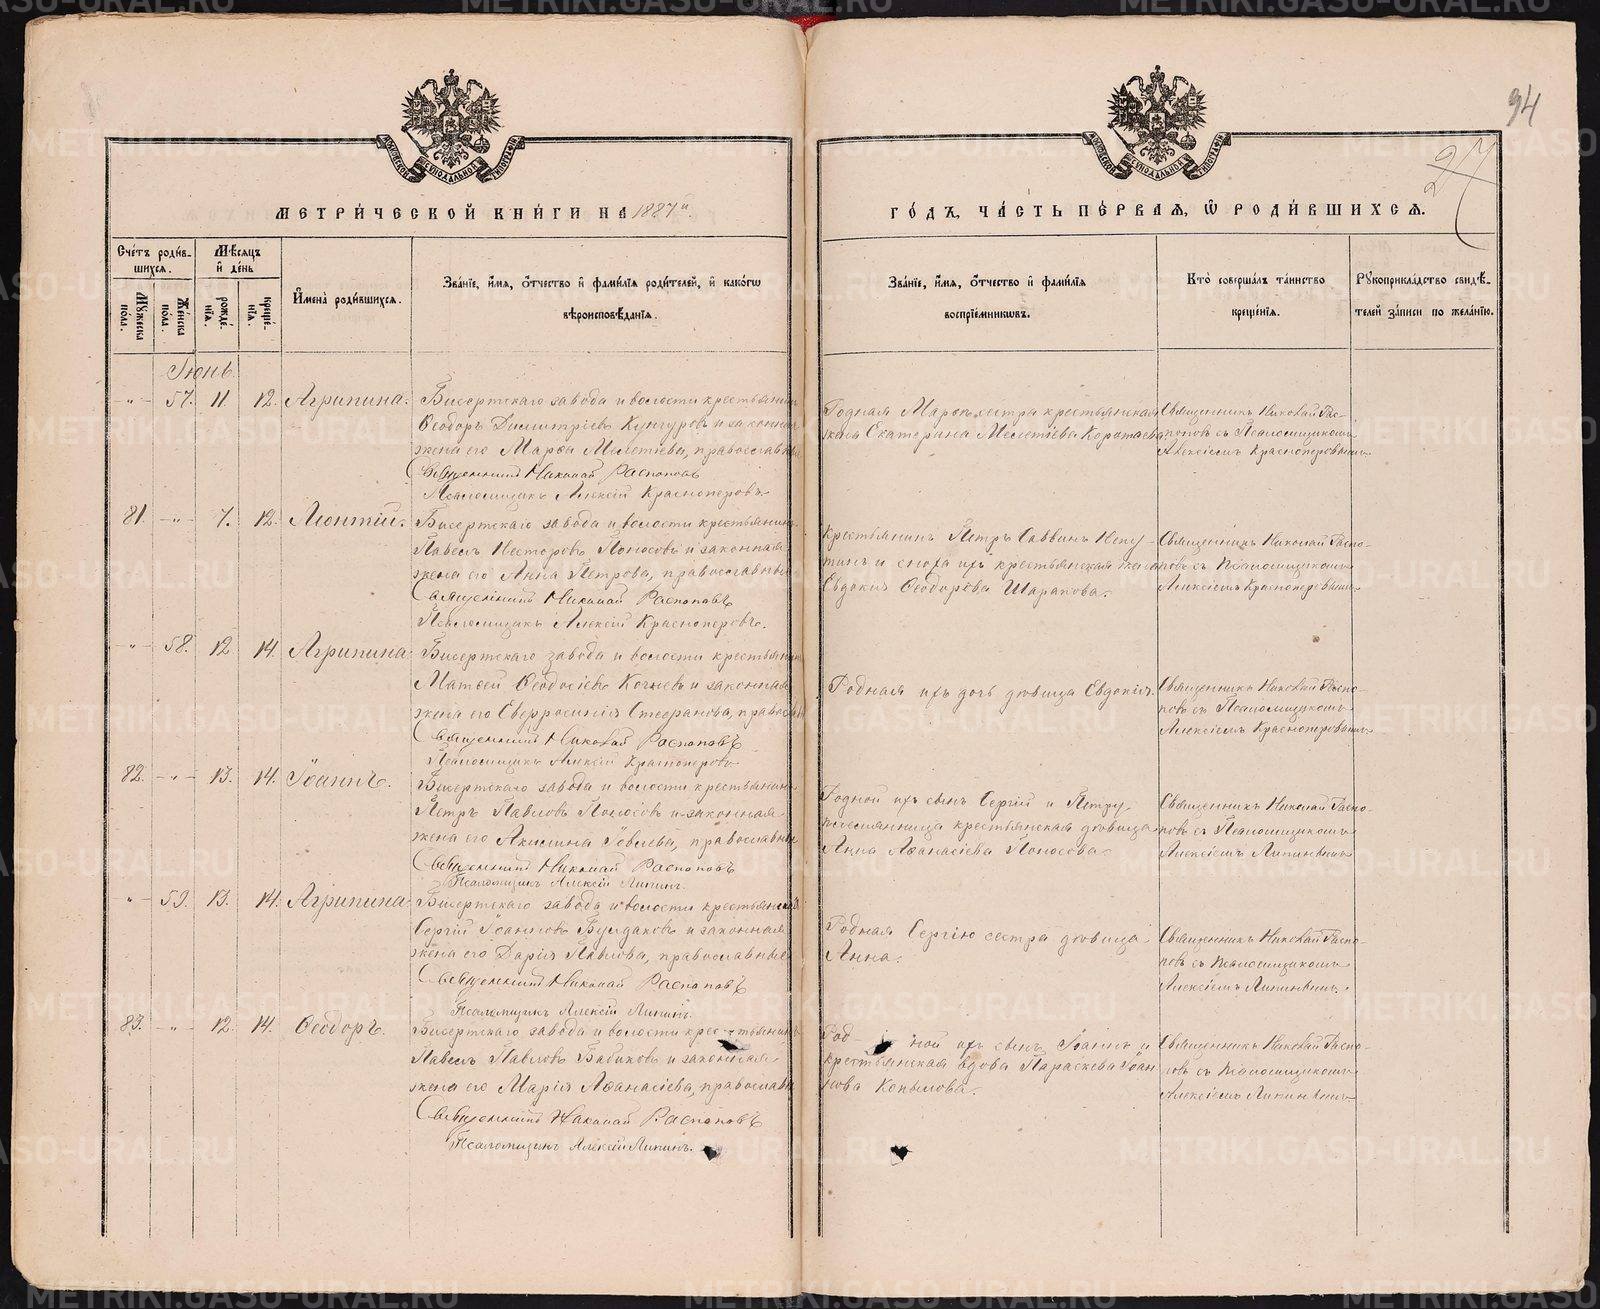 94
27
МЕТРИ́ЧЕСКОЙ КНИ́ГИ НА 1887й
ГО́ДЪ, ЧА́СТЬ ПЕ́РВАЯ, Ѽ РОДИ́ВШИХСЯ.
Сче́тъ роди́в-
шихся.
Мꙋжеска пола.
Же́нска пола.
Мѣ́сяцъ и де́нь
рожде́нїѧ.
креще́нїѧ.
И҆мена̀ роди́вшихсѧ.
Зва́нїе, и҆́мѧ, ѻ҆́тчество и҆ фами́лїѧ роди́телей, и҆ како́гѡ
вѣроисповѣ́данїѧ.
Зва́нїе, и҆́мѧ, ѻ҆́тчество и҆ фами́лїѧ
воспрїе́мникѡвъ.
Кто̀ соверша́лъ та́инство
креще́нїѧ.
Рꙋкоприкла́дство свидѣ́-
телей за́писи по жела́нїю.
Іюнь
-"- 57. 11. 12. Агрипина.
Бисертскаго завода и волости крестьянинъ
Ѳеодоръ Димитріевъ Кунгуровъ и законная
жена его Марѳа Мелетіева, православны
Священникъ Николай Распоповъ
Псаломщикъ Алексій Красноперовъ.
Родная Марѳѣ сестра крестьянская
жена Екатерина Мелетіева Коротаева
Священникъ Николай Рас-
поповъ съ Псаломщикомъ
Алексіемъ Красноперовымъ
81. -"- 7. 12. Леонтій.
Бисертскаго завода и волости крестьянинъ
Павелъ Несторовъ Поносовъ и законная
жена его Анна Петрова, православные
Священникъ Николай Распоповъ
Псаломщикъ Алексій Красноперовъ.
крестьянинъ Петръ Саввинъ
и сноха ихъ крестьянская жена
Евдокія Ѳеодорова Шарапова.
Священникъ Николай Распо-
повъ съ Псаломщикомъ
Алексіемъ Красноперовымъ
-"- 58. 12 14. Агрипина
Бисертскаго завода и волости крестьянинъ
Матѳей Ѳеодосіевъ и законная
жена его Евфросинія Стефанова, правосл
Священникъ Николай Распоповъ
Псаломщикъ Алексій Красноперовъ
Родная ихъ дочь дѣвица Евдокія.
Священникъ Николай Распо-
повъ съ Псаломщикомъ
Алексіемъ Красноперовымъ
82. -"- 13. 14. Іоаннъ.
Бисертскаго завода и волости крестьянинъ
Петръ Павловъ Поносовъ и законная
жена его Акилина Іовлева, православны
Священникъ Николай Распоповъ
Псаломщикъ Алексій Липинъ.
Родной ихъ сынъ Сергій и Петру
племянница крестьянская дѣвица
Анна Аѳанасіева Поносова.
Священникъ Николай Распо-
повъ съ Псаломщикомъ
Алексіемъ Липинымъ
-"- 59. 13. 14. Агрипина
Бисертскаго завода и волости крестьянинъ
Сергій Іоанновъ Булдаковъ и законная
жена его Дарія Павлова, православные
Священникъ Николай Распоповъ
Псаломщикъ Алексій Липинъ.
Родная Сергію сестра дѣвица
Анна.
Священникъ Николай Распо-
повъ съ Псаломщикомъ
Алексіемъ Липинымъ.
83. -"- 12. 14. Ѳеодоръ.
Бисертскаго завода и волости крестьянинъ
Павелъ Павловъ Бабиковъ и законная
жена его Марія Аѳанасіева, православны
Священникъ Николай Распоповъ
Псаломщикъ Алексій Липинъ.
Род- ной ихъ сынъ Іоаннъ и
крестьянская вдова Параскева Іоан
нова Копылова.
Священникъ Николай Распо-
повъ съ Псаломщикомъ
Алексіемъ Липинымъ
METRIKI.GASO-URAL.RU